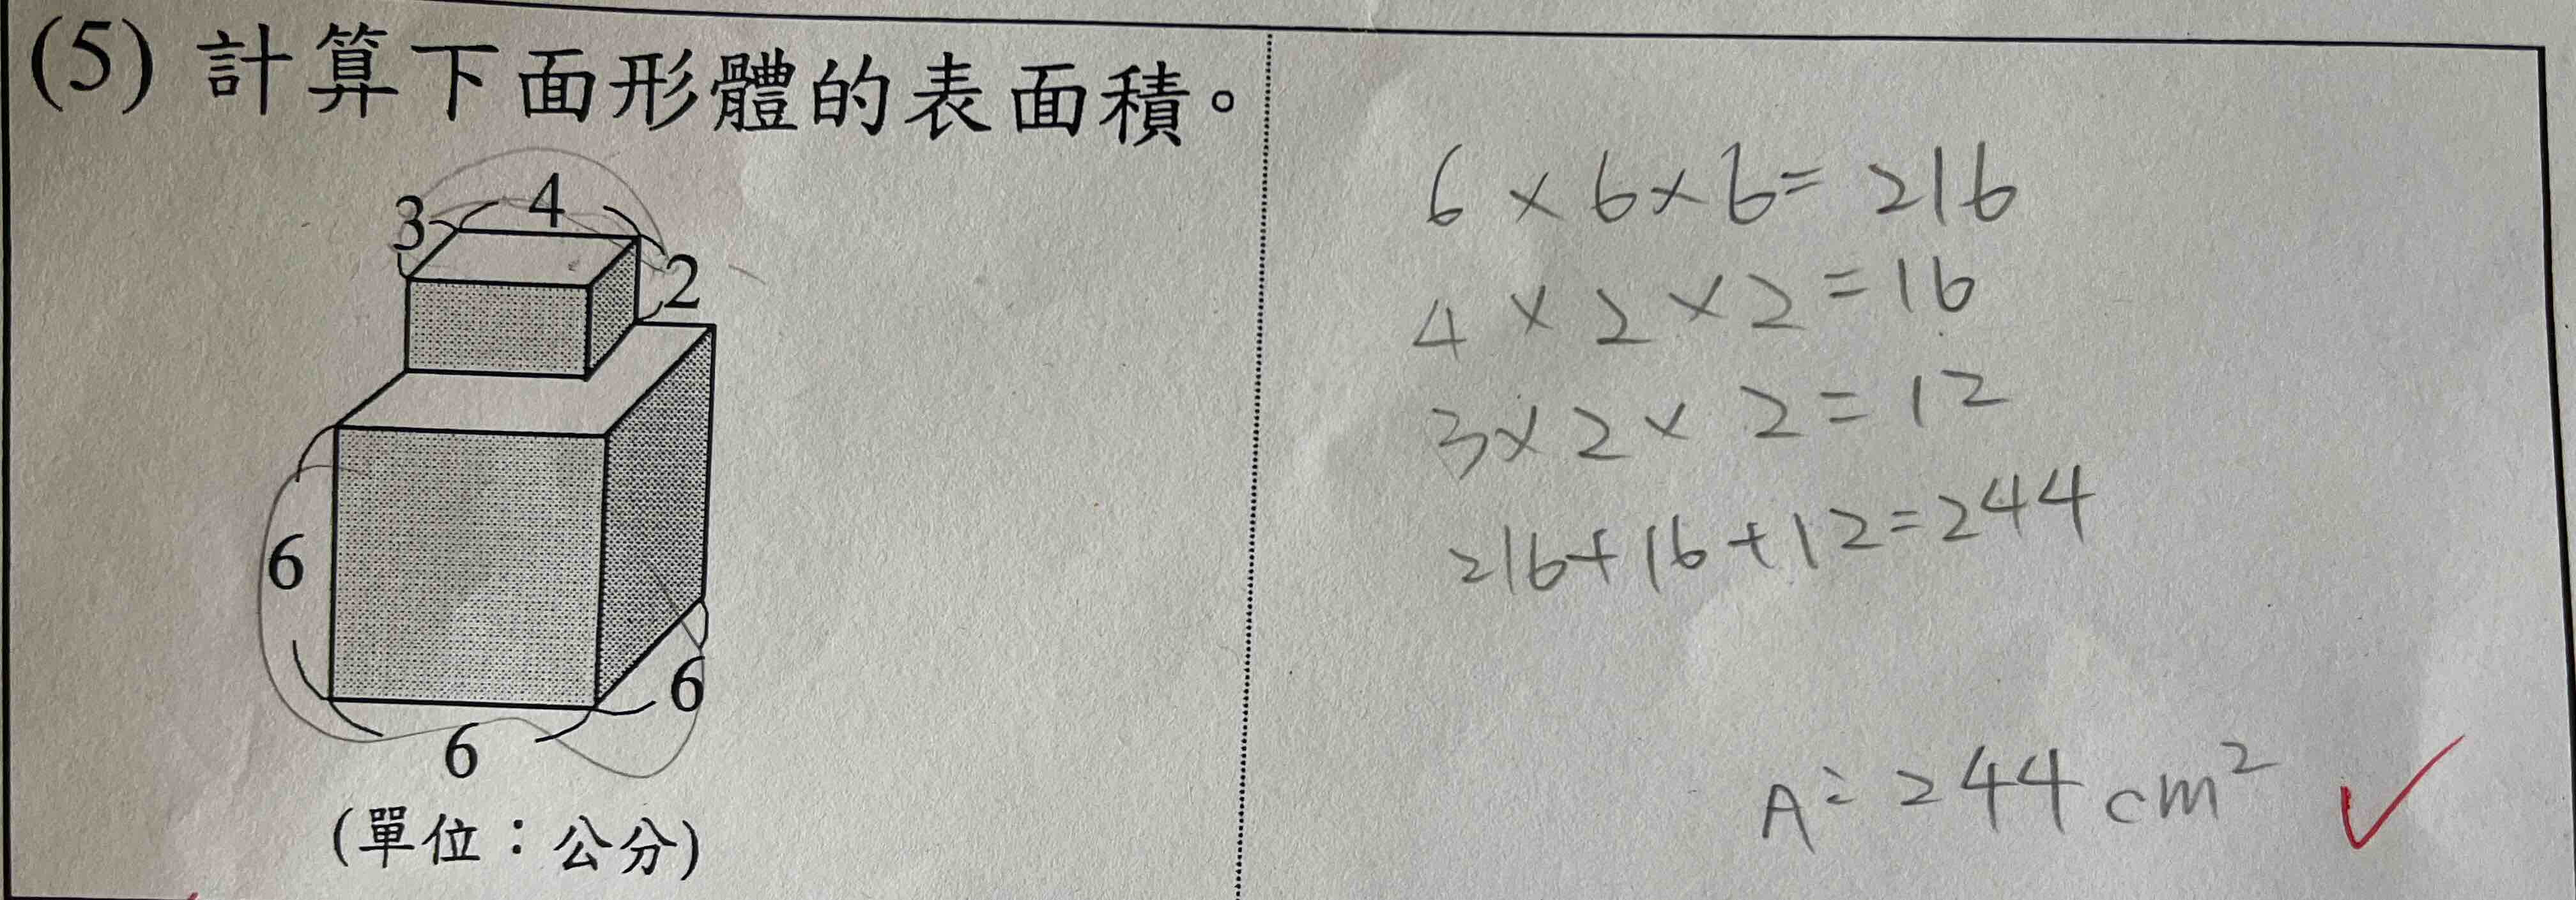 (5) 計算下面形體的表面積。
3 4
2
6
6
6
(單位：公分)
6 × 6 × 6 = 216
4 × 2 × 2 = 16
3 × 2 × 2 = 12
216 + 16 + 12 = 244
A: 244 cm²